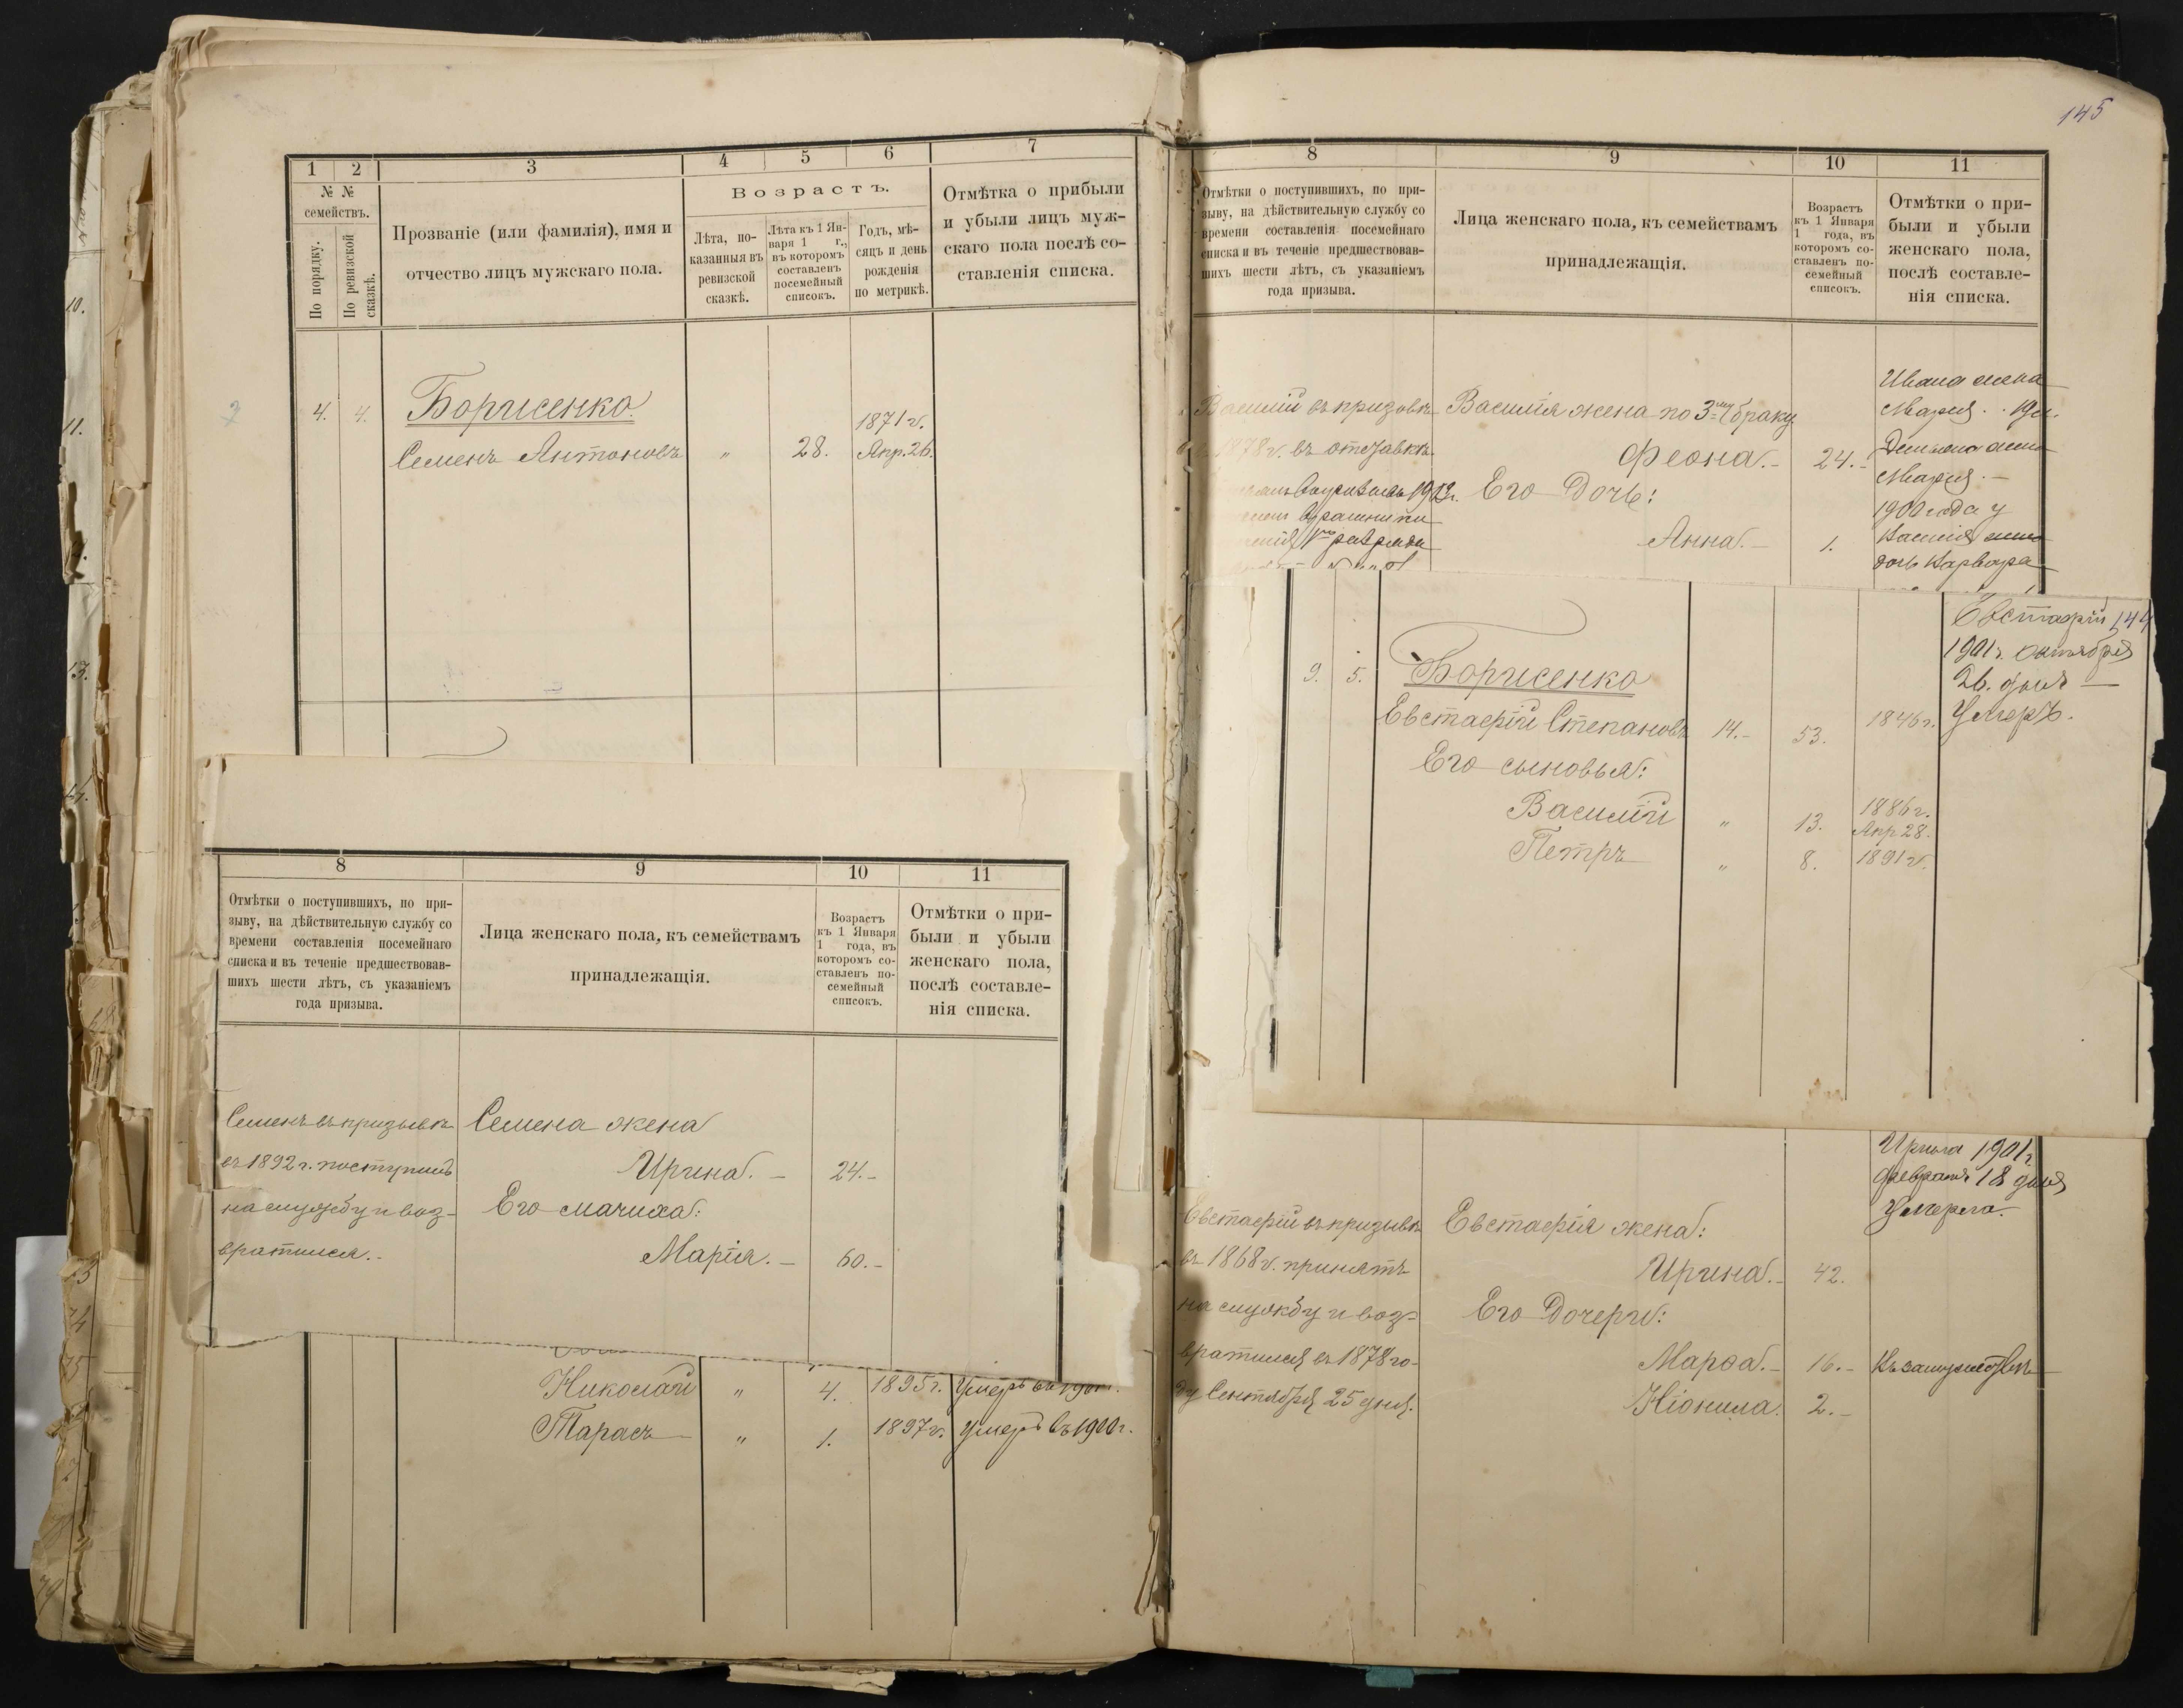 145
1 2 3 4 5 6 7
№ №
семействъ.
По порядку.
По ревизской
сказкѣ.
Прозваніе (или фамилія), имя и
отчество лицъ мужскаго пола.
Возрастъ.
Лѣта, по-
казанныя въ
ревизской
сказкѣ.
Лѣта къ 1 Ян-
варя 1 г.,
въ которомъ
составленъ
посемейный
списокъ.
Годъ, мѣ-
сяцъ и день
рожденія
по метрикѣ.
Отмѣтка о прибыли
и убыли лицъ муж-
скаго пола послѣ со-
ставленія списка.
4. 4. Борисенко
1871 г.
Семенъ Антоновъ " 28. Апр. 26.
8 9 10 11
Отмѣтки о поступившихъ, по при-
зыву, на дѣйствительную службу со
времени составленія посемейнаго
списка и въ теченіе предшествовав-
шихъ шести лѣтъ, съ указаніемъ
года призыва.
Лица женскаго пола, къ семействамъ
принадлежащія.
Возрастъ
къ 1 Января
1 года, въ
которомъ со-
ставленъ по-
семейный
списокъ.
Отмѣтки о при-
были и убыли
женскаго пола,
послѣ составле-
нія списка.
Семенъ въ призывѣ
въ 1892 г. поступилъ
на службу и воз-
вратился.
Семена жена
Ирина. 24.
Его мачиха:
Марія. 60.
Николай " 4. 1895 г. Умеръ въ
Тарасъ " 1. 1897 г. Умеръ въ 1900 г.
8 9 10 11
Отмѣтки о поступившихъ, по при-
зыву, на дѣйствительную службу со
времени составленія посемейнаго
списка и въ теченіе предшествовав-
шихъ шести лѣтъ, съ указаніемъ
года призыва.
Лица женскаго пола, къ семействамъ
принадлежащія.
Возрастъ
къ 1 Января
1 года, въ
которомъ со-
ставленъ по-
семейный
списокъ.
Отмѣтки о при-
были и убыли
женскаго пола,
послѣ составле-
нія списка.
Василій въ призовѣ
1878 г. въ отставкѣ.
Василія жена по 3му браку
Феона. 24.
Его дочь:
Анна. 1.
Ивана жена
Марія.
Марія.
1900 года у
Василія
дочь Варвара
144
9. 5. Борисенко
Евстафій Степановъ 14. 53. 1846 г.
Евстафій
1901 г. октября
26. дня
Умеръ.
Его сыновья:
Василій " 13. 1886 г.
Апр 28.
Петръ " 8. 1891 г.
Евстафій въ призывѣ
въ 1868 г. принятъ
на службу и воз-
вратился въ 1878 го-
ду Сентября 25 дня.
Евстафія жена:
Ирина. 42.
Его дочери:
Марфа. 16. Въ замужествѣ
Нiонила. 2.
Ирина 1901 г.
февраля 18 дня
Умерла.